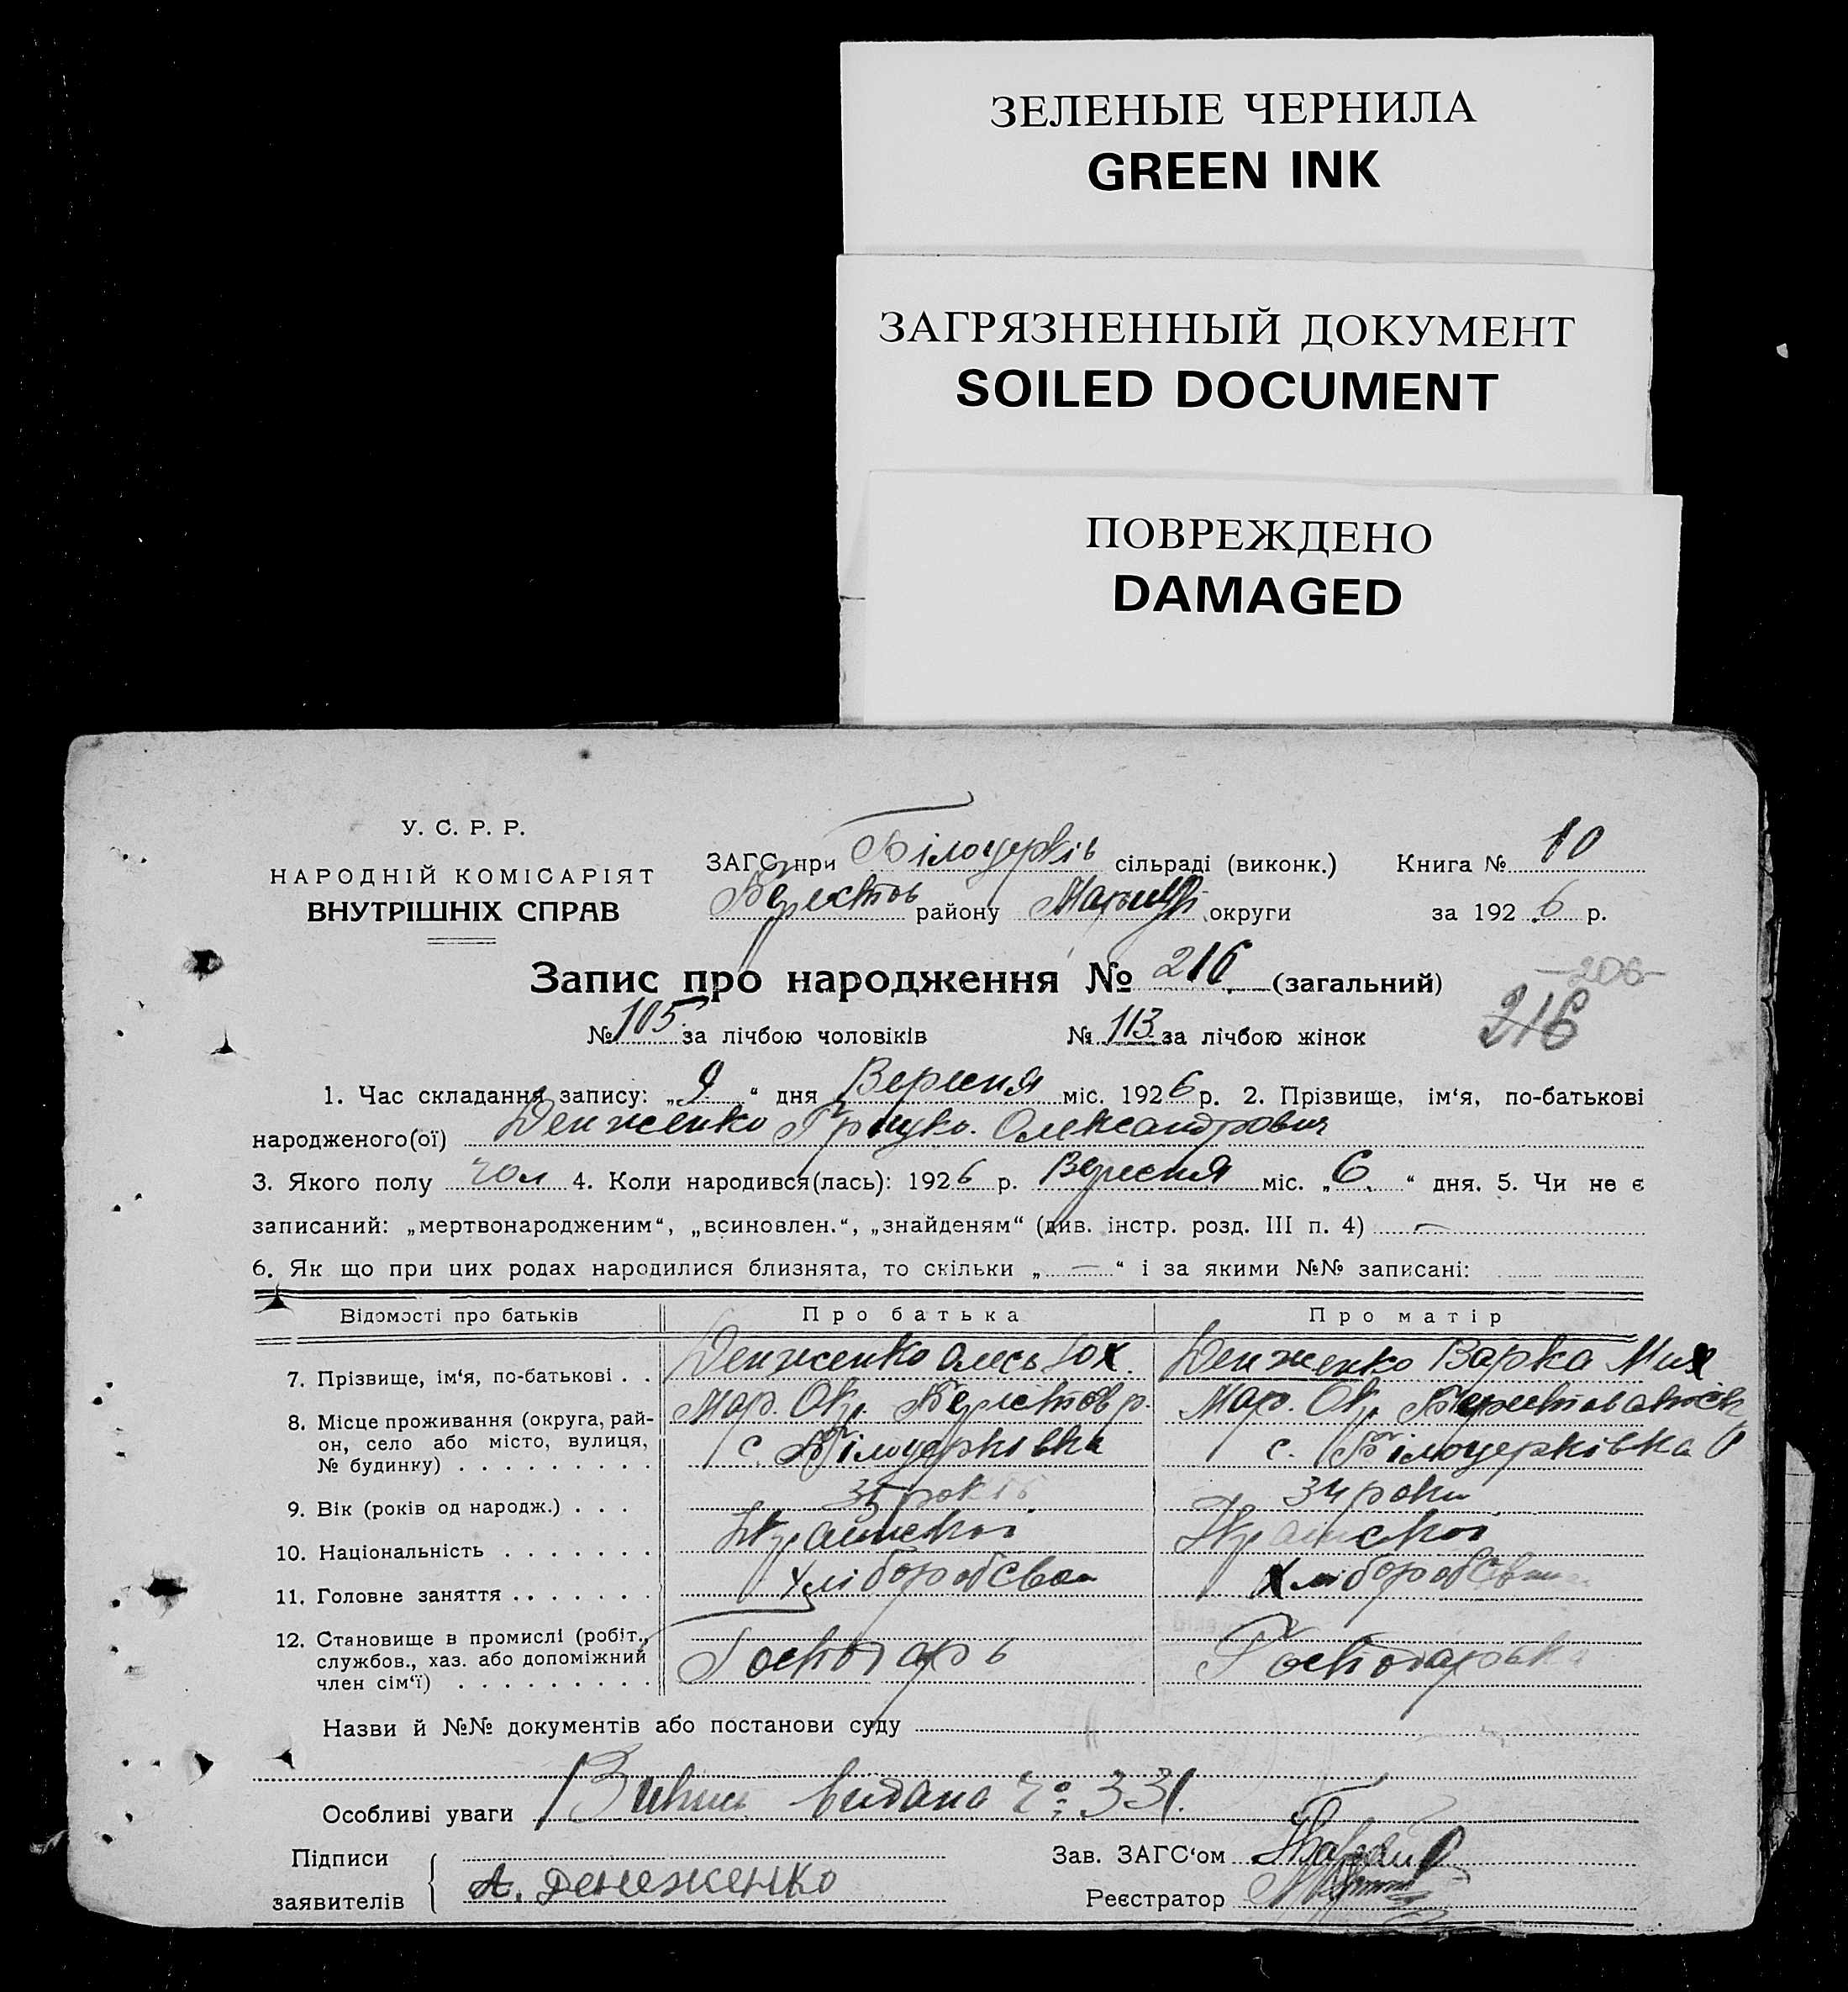 ЗЕЛЕНЫЕ ЧЕРНИЛА
GREEN INK
ЗАГРЯЗНЕННЫЙ ДОКУМЕНТ
SOILED DOCUMENT
ПОВРЕЖДЕНО
DAMAGED
У. С. Р. Р.
НАРОДНІЙ КОМІСАРІЯТ
ВНУТРІШНІХ СПРАВ
ЗАГС при Білоцерків сільраді (виконк.) Книга № 10
Берестов району Маріюп. округи за 1926 р.
Запис про народження № 216 (загальний)
-206-
№ 105 за лічбою чоловіків № 113 за лічбою жінок 216
1. Час складання запису: „9“ дня Вересня міс. 1926 р. 2. Прізвище, ім‘я, по-батькові
народженого(ої) Денженко Грицько Олександрович
3. Якого полу чол 4. Коли народився(лась): 1926 р. Вересня міс. „6“ дня. 5. Чи не є
записаний: „мертвонародженим“, „всиновлен.“, „знайденям“ (див. інстр. розд. III п. 4) —
6. Як що при цих родах народилися близнята, то скільки „—“ і за якими №№ записані:
Відомості про батьків Про батька Про матір
7. Прізвище, ім‘я, по-батькові . . Денженко Олесь Юх. Денженко Варка Мих
8. Місце проживання (округа, рай-
он, село або місто, вулиця,
№ будинку) . . . . . . . . . Мар. Окр. Берестов р. Мар. Окр.
с. Білоцерківка с. Білоцерківка
9. Вік (років од народж.) . . . 35 років 34 роки
10. Національність . . . . . . . Української Української
11. Головне заняття . . . . . . . Хліборобство Хліборобство
12. Становище в промислі (робіт.,
службов., хаз. або допоміжний
член сім‘ї) . . . . . . . . . Господарь Господарька
Назви й №№ документів або постанови суду
Особливі уваги Випис видана № 331.
Підписи
заявителів А. Денеженко
Зав. ЗАГС‘ом
Реєстратор